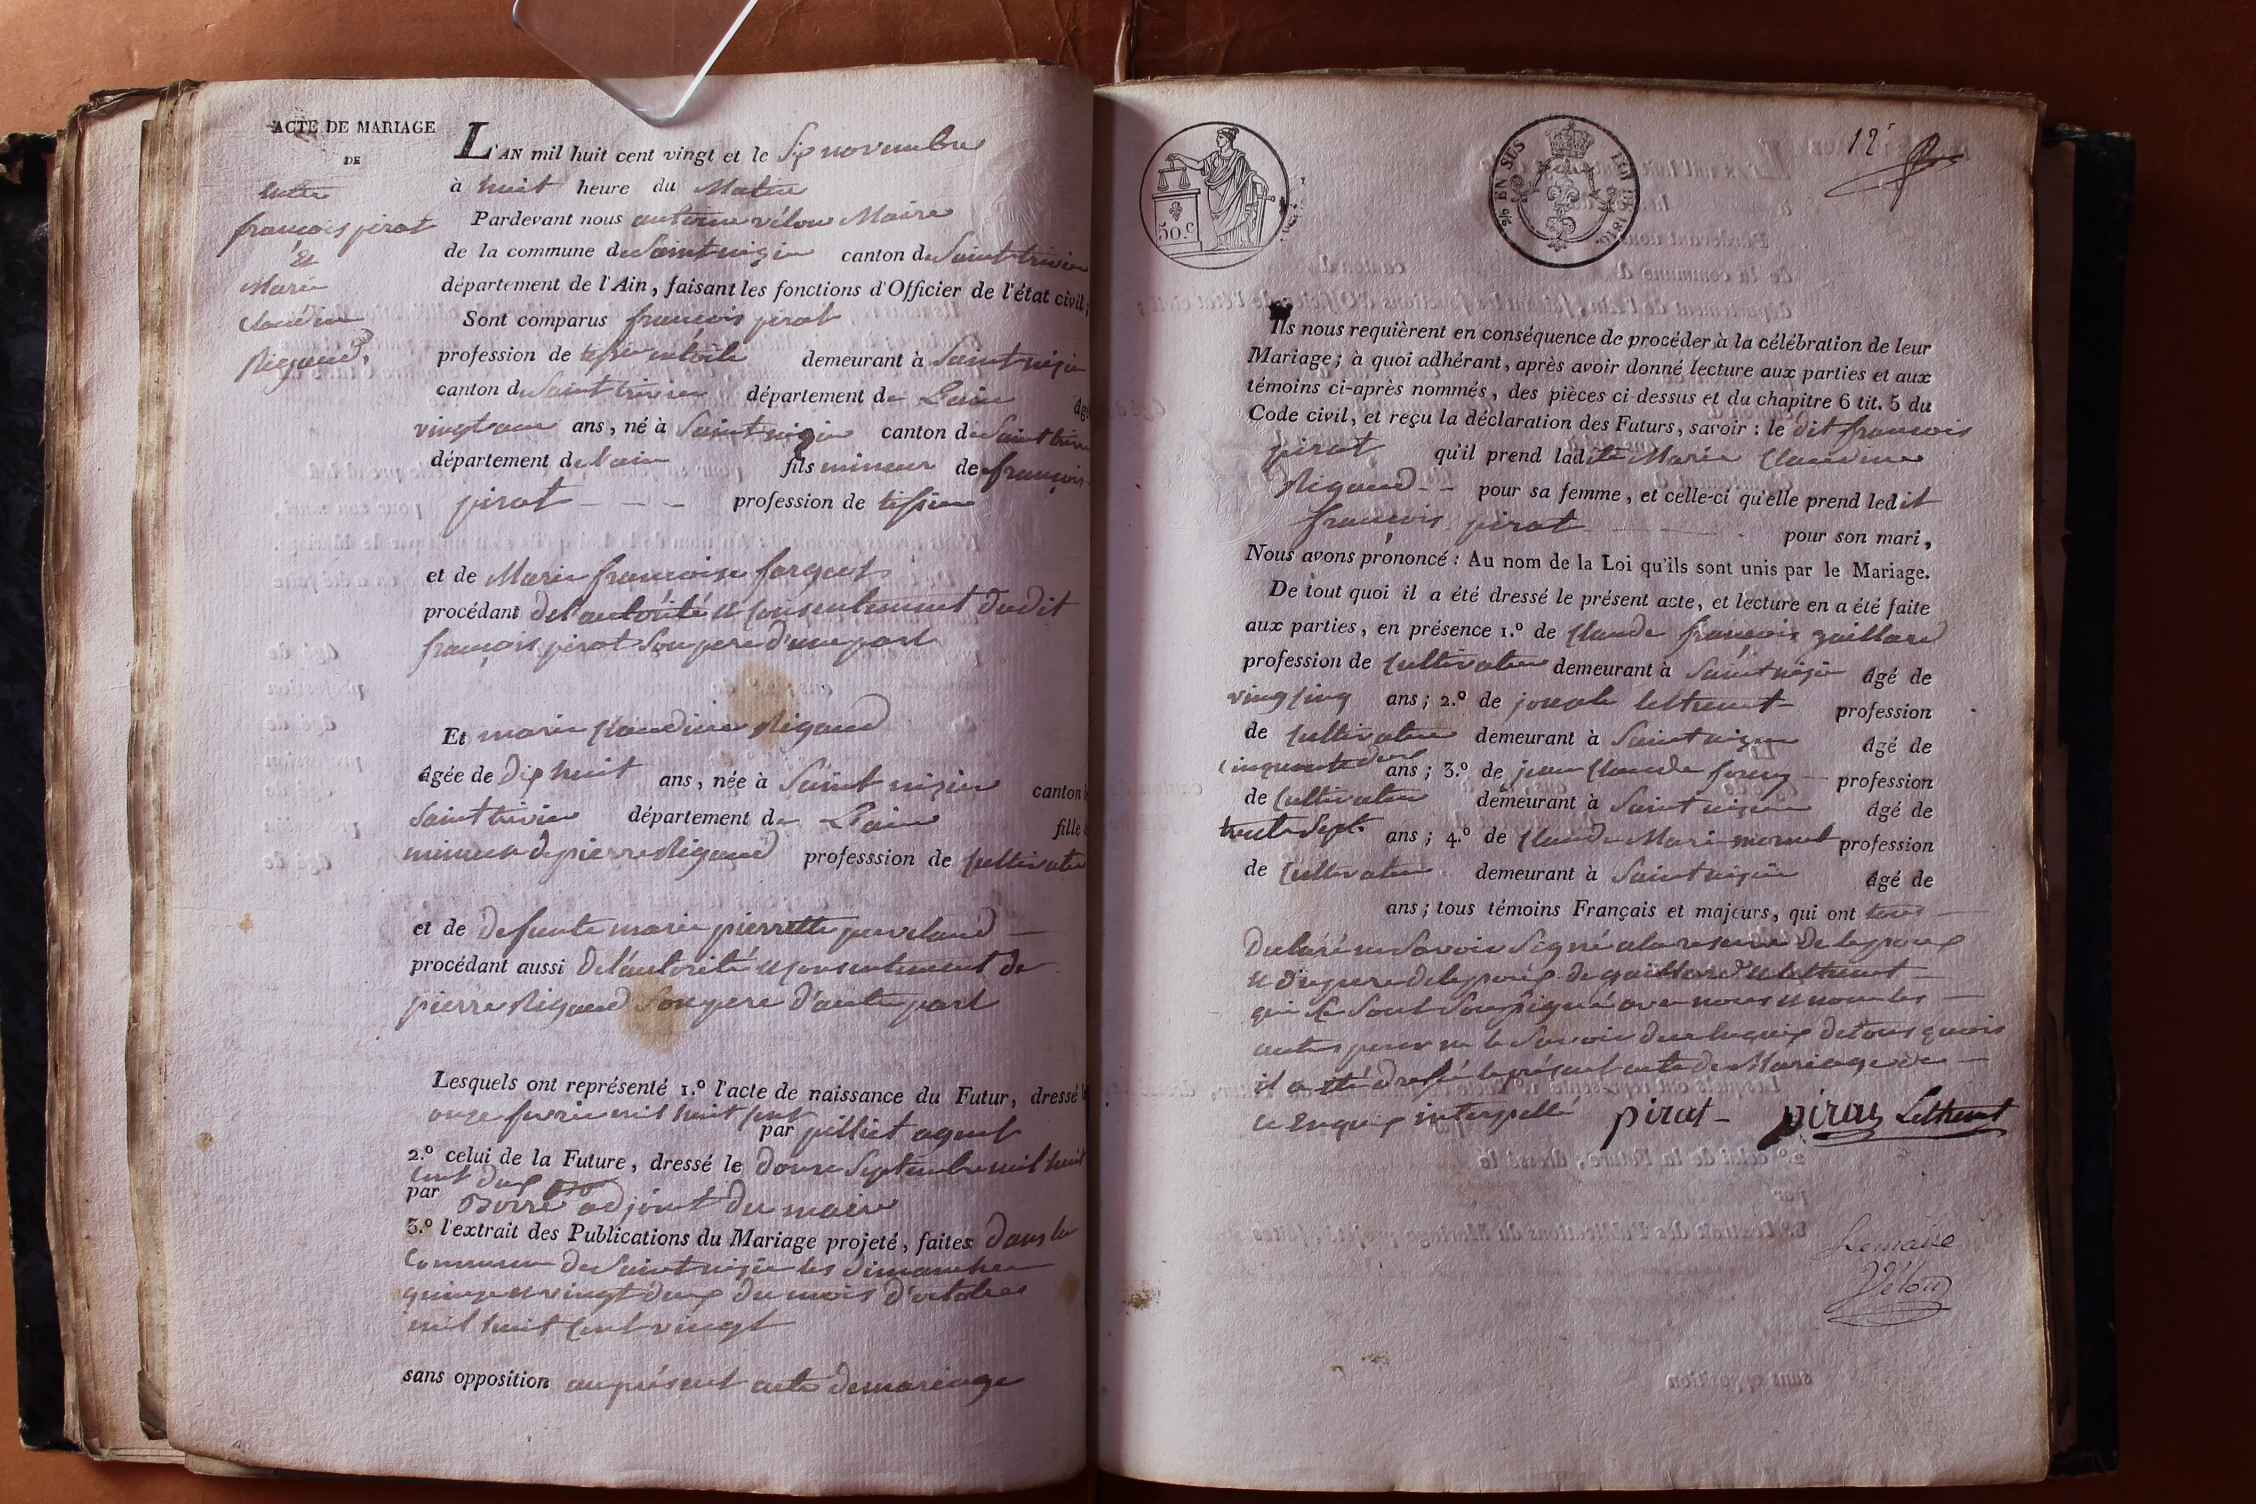 ACTE DE MARIAGE
DE
Entre
françois pirat
&
Marie
Claudine
Rigaud.
L'AN mil huit cent vingt et le Six novembre
à huit heure du Matin
Pardevant nous antoine vélon Maire
de la commune de Saint nizier canton de Saint trivier
département de l'Ain, faisant les fonctions d'Officier de l'état civil;
Sont comparus françois pirat
profession de tissier en toile demeurant à Saint nizier
canton de Saint trivier département de Lain âgé
vingt ans, né à Saint nizier canton de Saint trivier
département de lain fils mineur de françois
pirat profession de tissier
et de Marie françoise fargeot
procédant de l'autorité et Consentement dudit
françois pirat Son pere d'une part
Et marie Claudine Rigaud
âgée de Dix huit ans, née à Saint nizier canton
Saint trivier département de Lain fille
mineure de pierre Rigaud professsion de Cultivateur
et de defunte marie pierrette
procédant aussi De l'autorité et Consentement de
pierre Rigaud Son pere d'autre part
Lesquels ont représenté 1.º l'acte de naissance du Futur, dressé le
onze mil huit Cent
par pilliet agent
2.º celui de la Future, dressé le douze Septembre mil huit
Cent deux
par Borre adjoint du maire
3.º l'extrait des Publications du Mariage projeté, faites Dans la
Commune de Saint nizier les Dimanche
quinze et vingt deux du mois d'octobre
mil huit Cent vingt
sans opposition au présent acte de mariage
50.C
EN SUS
LOI DE 1816.
12
Ils nous requièrent en conséquence de procéder à la célébration de leur
Mariage; à quoi adhérant, après avoir donné lecture aux parties et aux
témoins ci-après nommés, des pièces ci-dessus et du chapitre 6 tit. 5 du
Code civil, et reçu la déclaration des Futurs, savoir: le dit françois
pirat qu'il prend ladite Marie Claudine
Rigaud pour sa femme, et celle-ci qu'elle prend ledit
françois pirat pour son mari,
Nous avons prononcé: Au nom de la Loi qu'ils sont unis par le Mariage.
De tout quoi il a été dressé le présent acte, et lecture en a été faite
aux parties, en présence 1.º de Claude françois gaillard
profession de Cultivateur demeurant à Saint nizier âgé de
ving Cinq ans; 2.º de joseph lethenet profession
de Cultivateur demeurant à Saint nizier âgé de
Cinquante deux ans; 3.º de jean Claude profession
de Cultivateur demeurant à Saint nizier âgé de
trente Sept ans; 4.º de Claude Marie profession
de Cultivateur demeurant à Saint nizier âgé de
ans; tous témoins Français et majeurs, qui ont tous
Declaré ne Savoir Signé a la reserve de lepoux
et du pere de lepoux de gaillard et lethenet
qui Se Sont Soussigné avec nous et non les
autres pour ne le Savoir de tous quois
il a été dressé le présent acte de Mariage de
ce enquis interpellé pirat pirat Lethenet
Le maire
Vélon